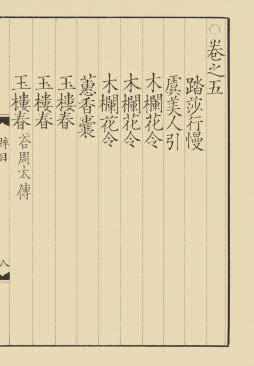 ○卷之五
踏莎行慢
虞美人引
木欄花令
木欄花令
木欄花令
蕙香囊
玉樓春
玉樓春
玉樓春 荅周太傅
八